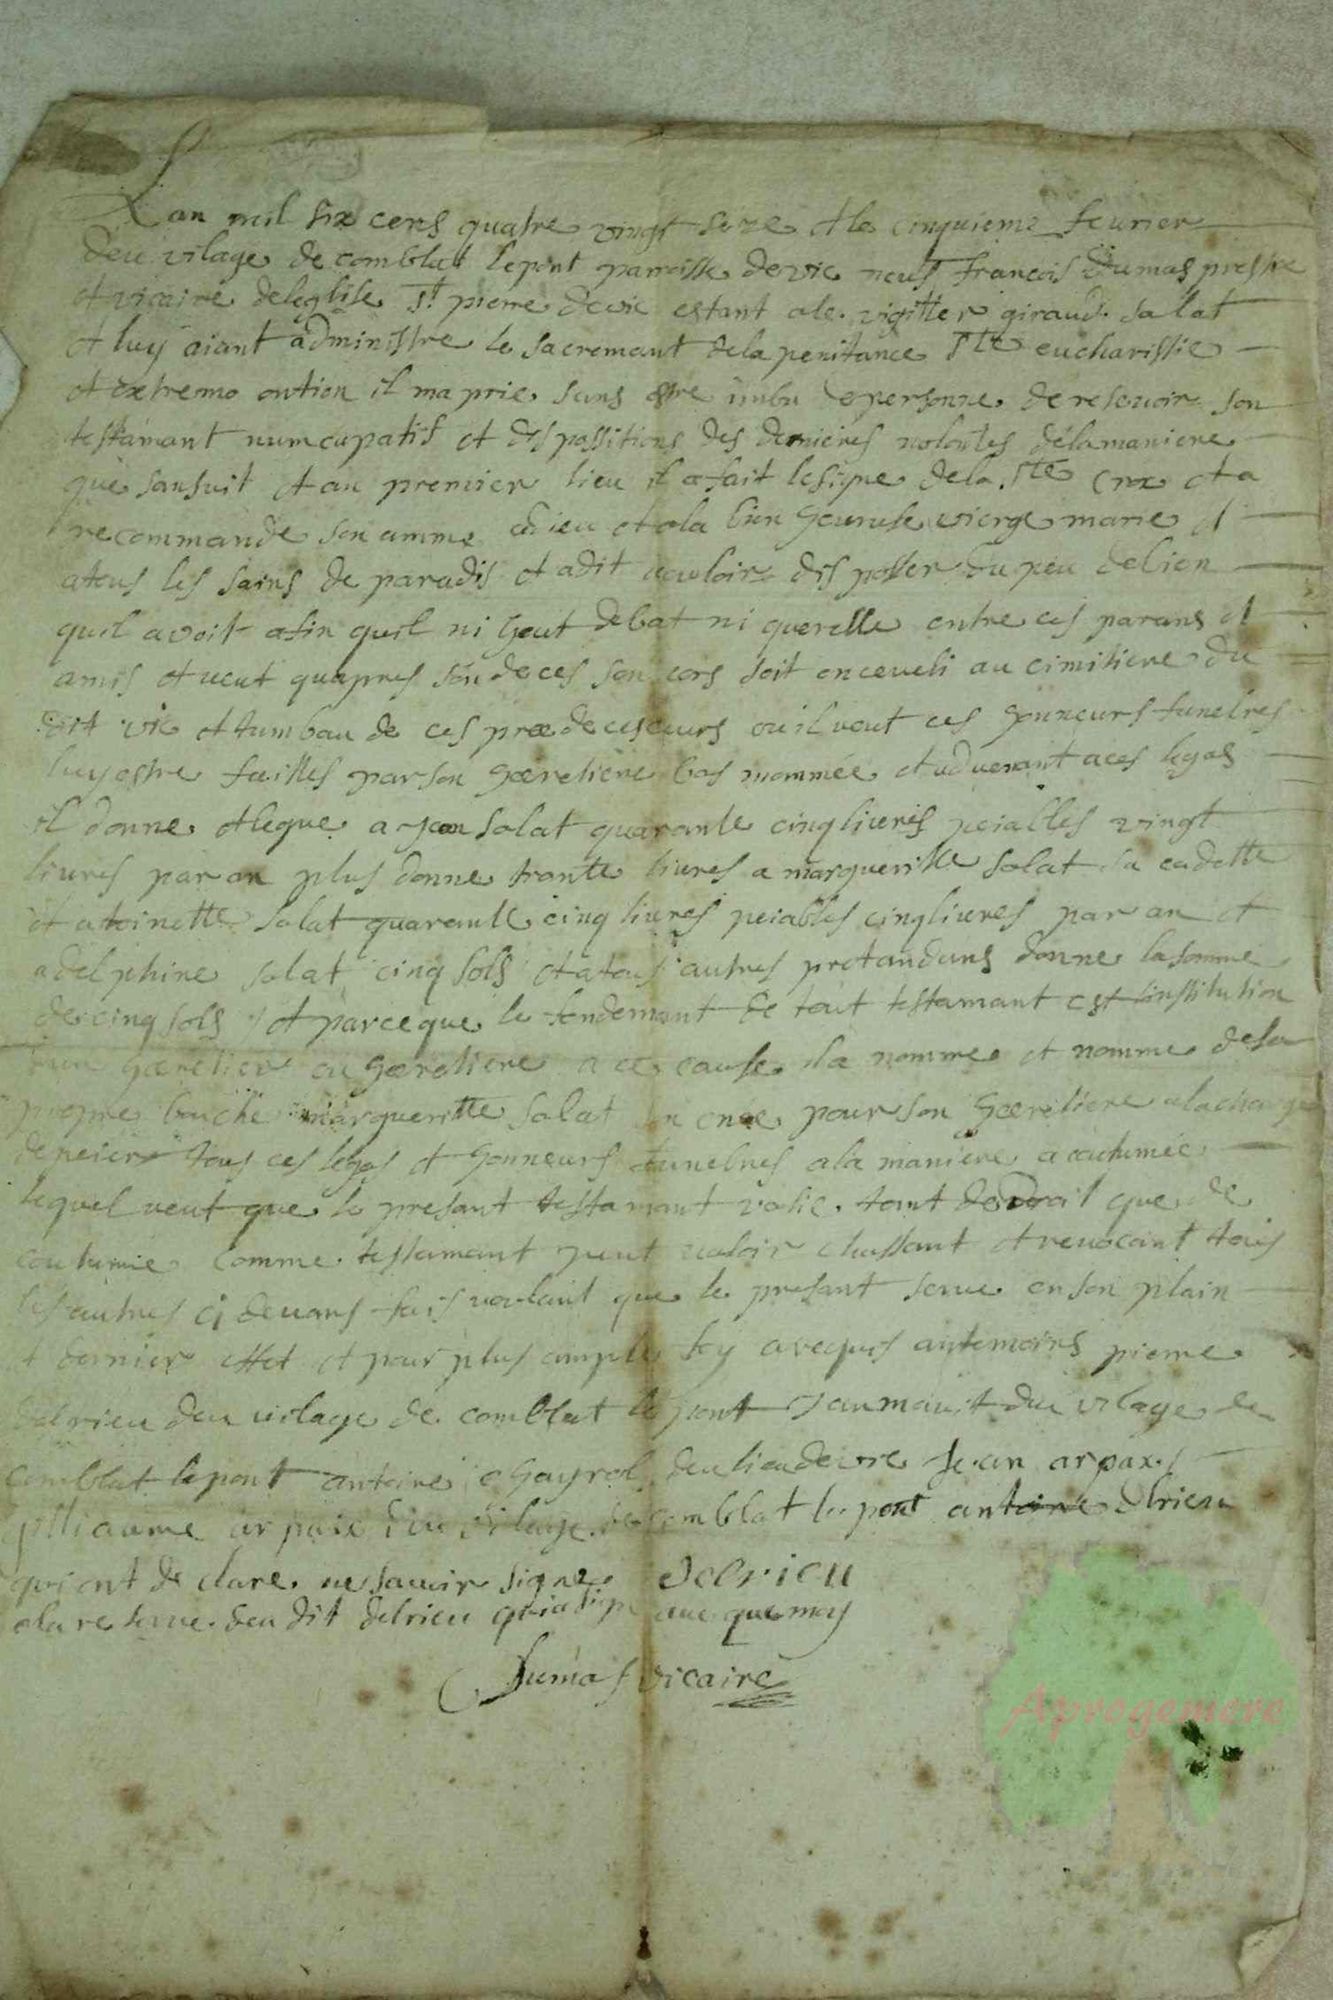 Lan mil six cens quatre vingt seize et le cinquieme feurier
deu vilage de comblat lepont parroisse devic nous francois Dumas prestre
et vicaire deleglise St pierre devic estant ale vigitter giraud salat
et luy aiant administre le sacremant dela penitance Ste eucharistie
et extremo ontion il ma prie sans estre imbu de personne de resevoir son
testamant numcupatif et dispossitions des dernieres volontes delamaniere
que sansuit et au premier lieu il a fait lesigne dela Ste crox et a
recommande son amme a dieu et ala bien heuruse vierge marie et
atous les sains de paradis et adit vouloir disposser du peu debien
quil avoit afin quil ni heut debat ni querelle entre ces parans et
amis et veut quapres son deces son cors soit enceveli au cimitiere du
dit vic et tumbau de ces predeceseurs ou il veut ces honneurs funebres
luy estre faittes par son heretiere bas nommée et advenant a ces legas
il donne et legue a jean salat quarante cinq livres peiables vingt
livres par an plus donne trante livres a margueritte salat sa cadette
et atoinette salat quarante cinq livres peiables cinq livres par an et
a delphine salat cinq sols et a tous autres pretandans donne la somme
de cinq sols et parceque le fondemant de tout testamant est linstitution
dun heretier ou heretiere a ce cause il a nomme et nomme de sa
propre bouche margueritte salat son enee pour son heretiere ala charge
depeier tous ces legas et honneurs funebres ala maniere a coutumée
lequel veut que le presant testamant valie tant de droit que de
coutume comme testamant peut valoir chassant et revocant tous
les autres ci devans fais voulant que le presant serve en son plain
et dernier effet et pour plus ample foy avecques autemoins pierre
delrieu deu vilage de comblat le pont jan mauit deu vilage de
comblat lepont antoine chayrol deu lieu devic jean arpaxs
gilliaume arpaie deu vilage de comblat le pont antoine delrieu
qui ont de clare ne savoir signe delrieu
ala reserve deu dit delrieu qui a signe aveque moy
Dumas vicaire
Aprogemere